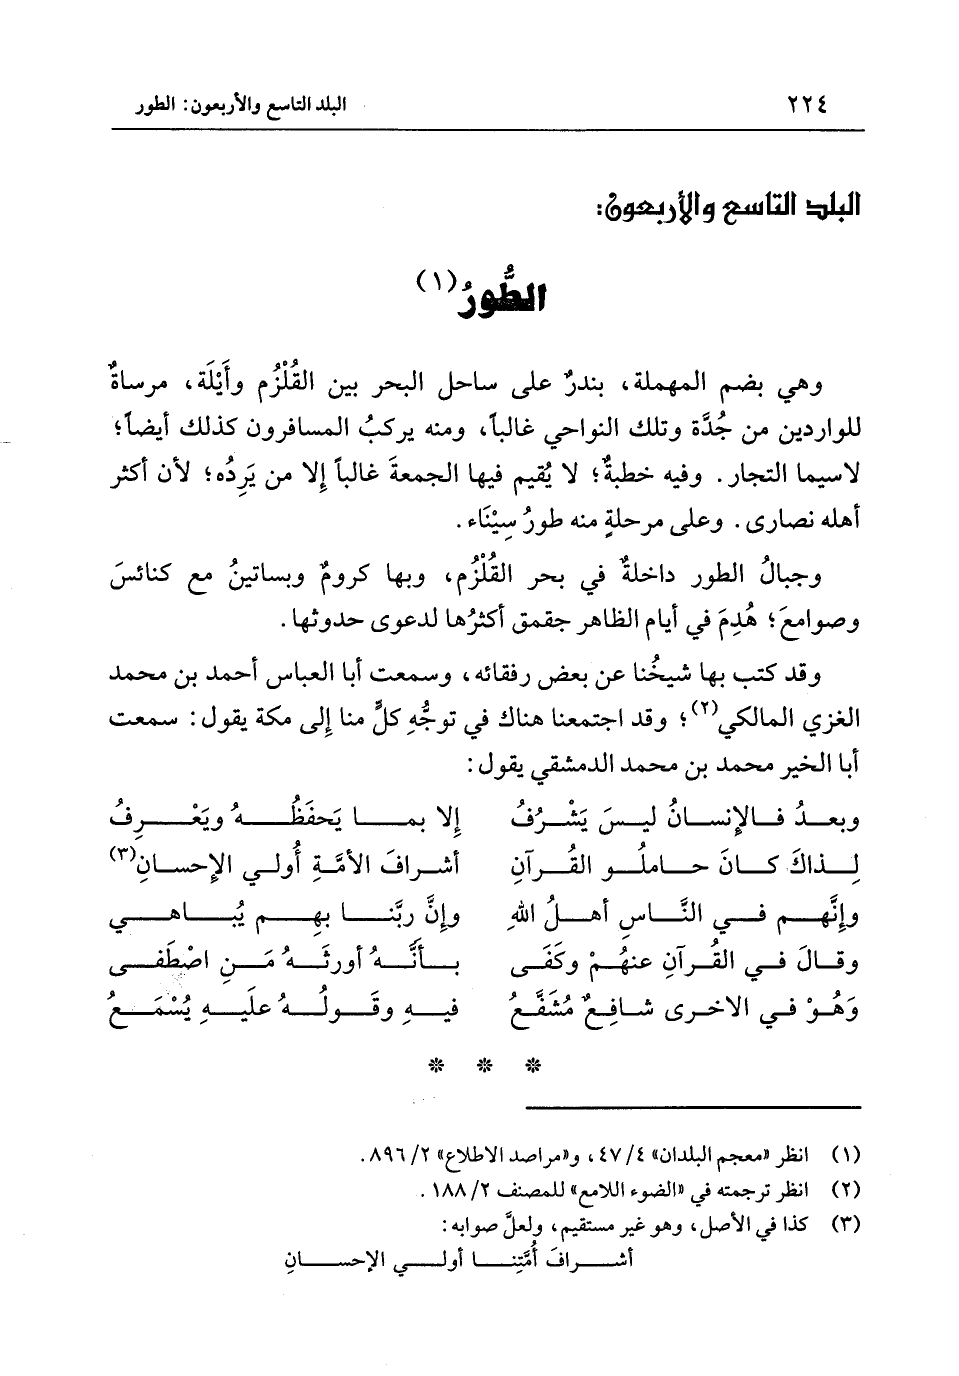 ٢٢٤ البلد التاسع والأربعون: الطور
البلد التاسع والأربعون:
الطُّورُ (١)
وهي بضم المهملة، بندرٌ على ساحل البحر بين القُلْزُم وأَيْلَة، مرساةٌ
للواردين من جُدَّة وتلك النواحي غالباً، ومنه يركبُ المسافرون كذلك أيضاً؛
لاسيما التجار. وفيه خطبةٌ؛ لا يُقيم فيها الجمعةَ غالباً إلا من يَرِدُه؛ لأن أكثر
أهله نصارى. وعلى مرحلةٍ منه طورُ سِيْنَاء.
وجبالُ الطور داخلةٌ في بحر القُلْزُم، وبها كرومٌ وبساتينُ مع كنائسَ
وصوامعَ؛ هُدِمَ في أيام الظاهر جقمق أكثرُها لدعوى حدوثها.
وقد كتب بها شيخُنا عن بعض رفقائه، وسمعت أبا العباس أحمد بن محمد
الغزي المالكي(٢)؛ وقد اجتمعنا هناك في توجُّهِ كلٍّ منا إلى مكة يقول: سمعت
أبا الخير محمد بن محمد الدمشقي يقول:
وبعدُ فالإنسانُ ليسَ يَشْرُفُ إلا بما يَحفَظُهُ ويَعْرِفُ
لِذاكَ كانَ حاملُو القُرآنِ أشرافَ الأمَّةِ أُولي الإحسانِ(٣)
وإنَّهم في النَّاسِ أهلُ اللهِ وإنَّ ربَّنا بهِم يُباهي
وقالَ في القُرآنِ عنهُمْ وكَفَى بأنَّهُ أورثَهُ مَنِ اصْطَفى
وَهُوْ في الاخرى شافِعٌ مُشَفَّعُ فيهِ وقَولُهُ علَيهِ يُسْمَعُ
* * *
(١) انظر «معجم البلدان» ٤/ ٤٧، و«مراصد الاطلاع» ٢/ ٨٩٦.
(٢) انظر ترجمته في «الضوء اللامع» للمصنف ٢/ ١٨٨.
(٣) كذا في الأصل، وهو غير مستقيم، ولعلَّ صوابه:
أشرافَ أُمَّتِنا أولي الإحسانِ